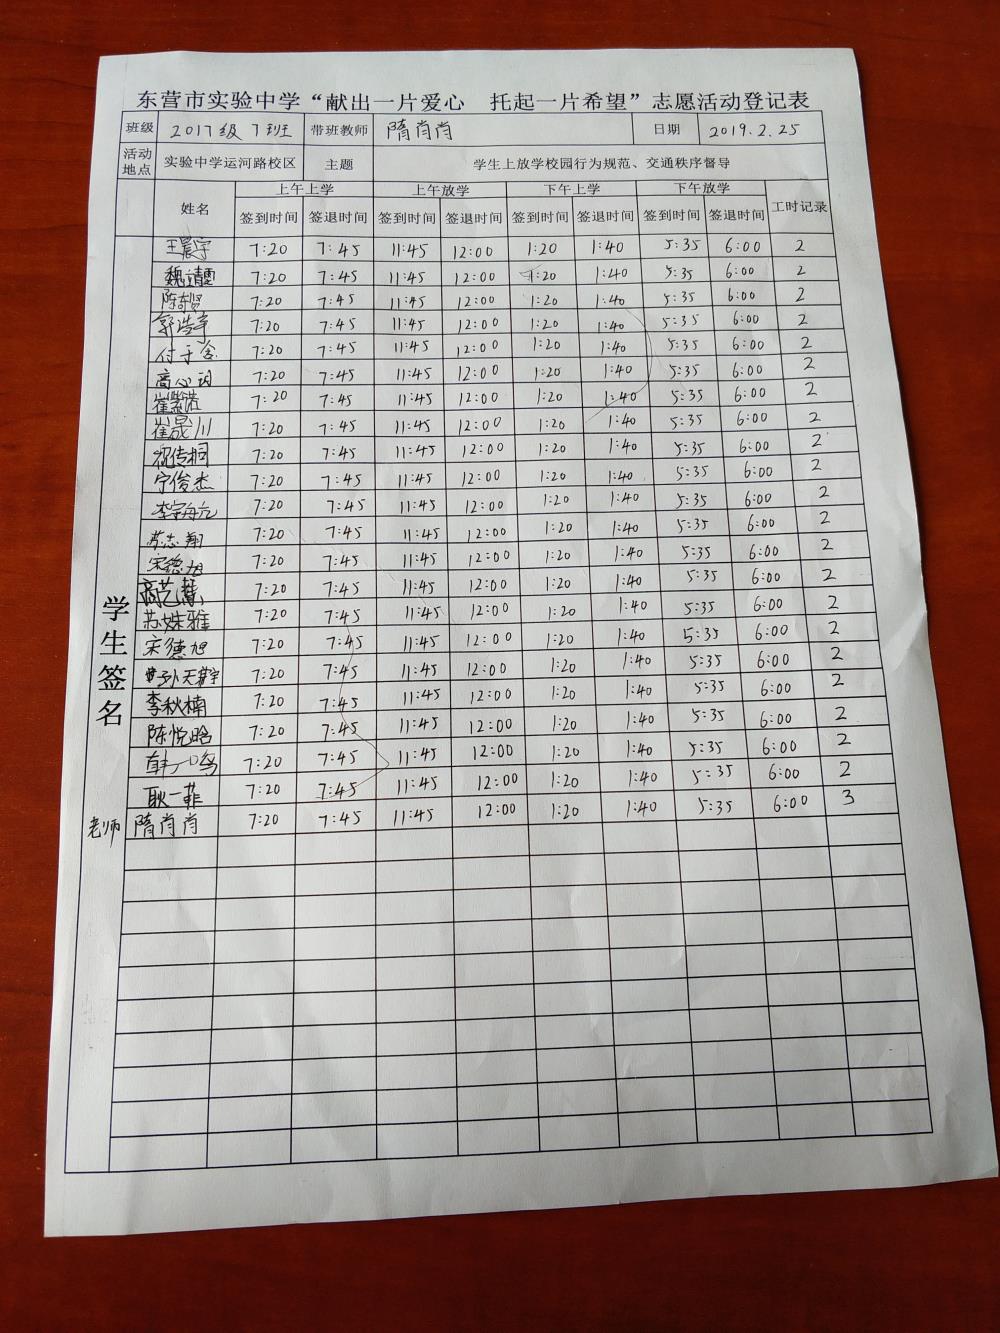 东营市实验中学“献出一片爱心 托起一片希望”志愿活动登记表
班级 2017级7班 带班教师 隋肖肖 日期 2019.2.25
活动地点 实验中学运河路校区 主题 学生上放学校园行为规范、交通秩序督导
姓名 上午上学 上午放学 下午上学 下午放学 工时记录
签到时间 签退时间 签到时间 签退时间 签到时间 签退时间 签到时间 签退时间
学生签名
王晨宇 7:20 7:45 11:45 12:00 1:20 1:40 5:35 6:00 2
魏靖雯 7:20 7:45 11:45 12:00 1:20 1:40 5:35 6:00 2
陈奇贤 7:20 7:45 11:45 12:00 1:20 1:40 5:35 6:00 2
郭浩宇 7:20 7:45 11:45 12:00 1:20 1:40 5:35 6:00 2
付子含 7:20 7:45 11:45 12:00 1:20 1:40 5:35 6:00 2
高心玥 7:20 7:45 11:45 12:00 1:20 1:40 5:35 6:00 2
崔 7:20 7:45 11:45 12:00 1:20 1:40 5:35 6:00 2
崔晟川 7:20 7:45 11:45 12:00 1:20 1:40 5:35 6:00 2
祝传桐 7:20 7:45 11:45 12:00 1:20 1:40 5:35 6:00 2
宁俊杰 7:20 7:45 11:45 12:00 1:20 1:40 5:35 6:00 2
李 7:20 7:45 11:45 12:00 1:20 1:40 5:35 6:00 2
志翔 7:20 7:45 11:45 12:00 1:20 1:40 5:35 6:00 2
宋德旭 7:20 7:45 11:45 12:00 1:20 1:40 5:35 6:00 2
高艺慧 7:20 7:45 11:45 12:00 1:20 1:40 5:35 6:00 2
苏姝雅 7:20 7:45 11:45 12:00 1:20 1:40 5:35 6:00 2
宋德旭 7:20 7:45 11:45 12:00 1:20 1:40 5:35 6:00 2
孙天宇 7:20 7:45 11:45 12:00 1:20 1:40 5:35 6:00 2
李秋楠 7:20 7:45 11:45 12:00 1:20 1:40 5:35 6:00 2
陈悦晗 7:20 7:45 11:45 12:00 1:20 1:40 5:35 6:00 2
韩一鸣 7:20 7:45 11:45 12:00 1:20 1:40 5:35 6:00 2
耿一菲 7:20 7:45 11:45 12:00 1:20 1:40 5:35 6:00 2
老师 隋肖肖 7:20 7:45 11:45 12:00 1:20 1:40 5:35 6:00 3